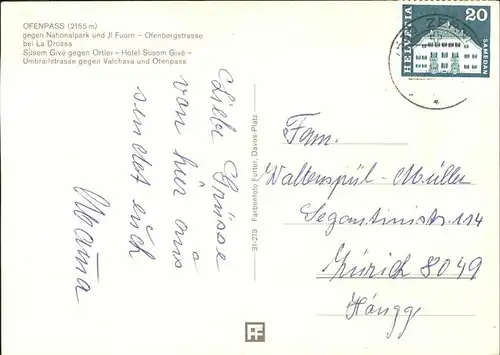 OFENPASS (2155 m)
gegen Nationalpark und Jl Fuorn – Ofenbergstrasse
bei La Drossa
Süsom Givè gegen Ortler – Hotel Süsom Givè –
Umbrailstrasse gegen Valchava und Ofenpass
Liebe Grüsse
von hier aus
sendet euch
31-213 Farbenfoto Furter, Davos-Platz
HELVETIA
20
SAMEDAN
ZERNEZ
Fam.
Waltenspül-Müller
Segantinistr. 114
Zürich 8049
Höngg